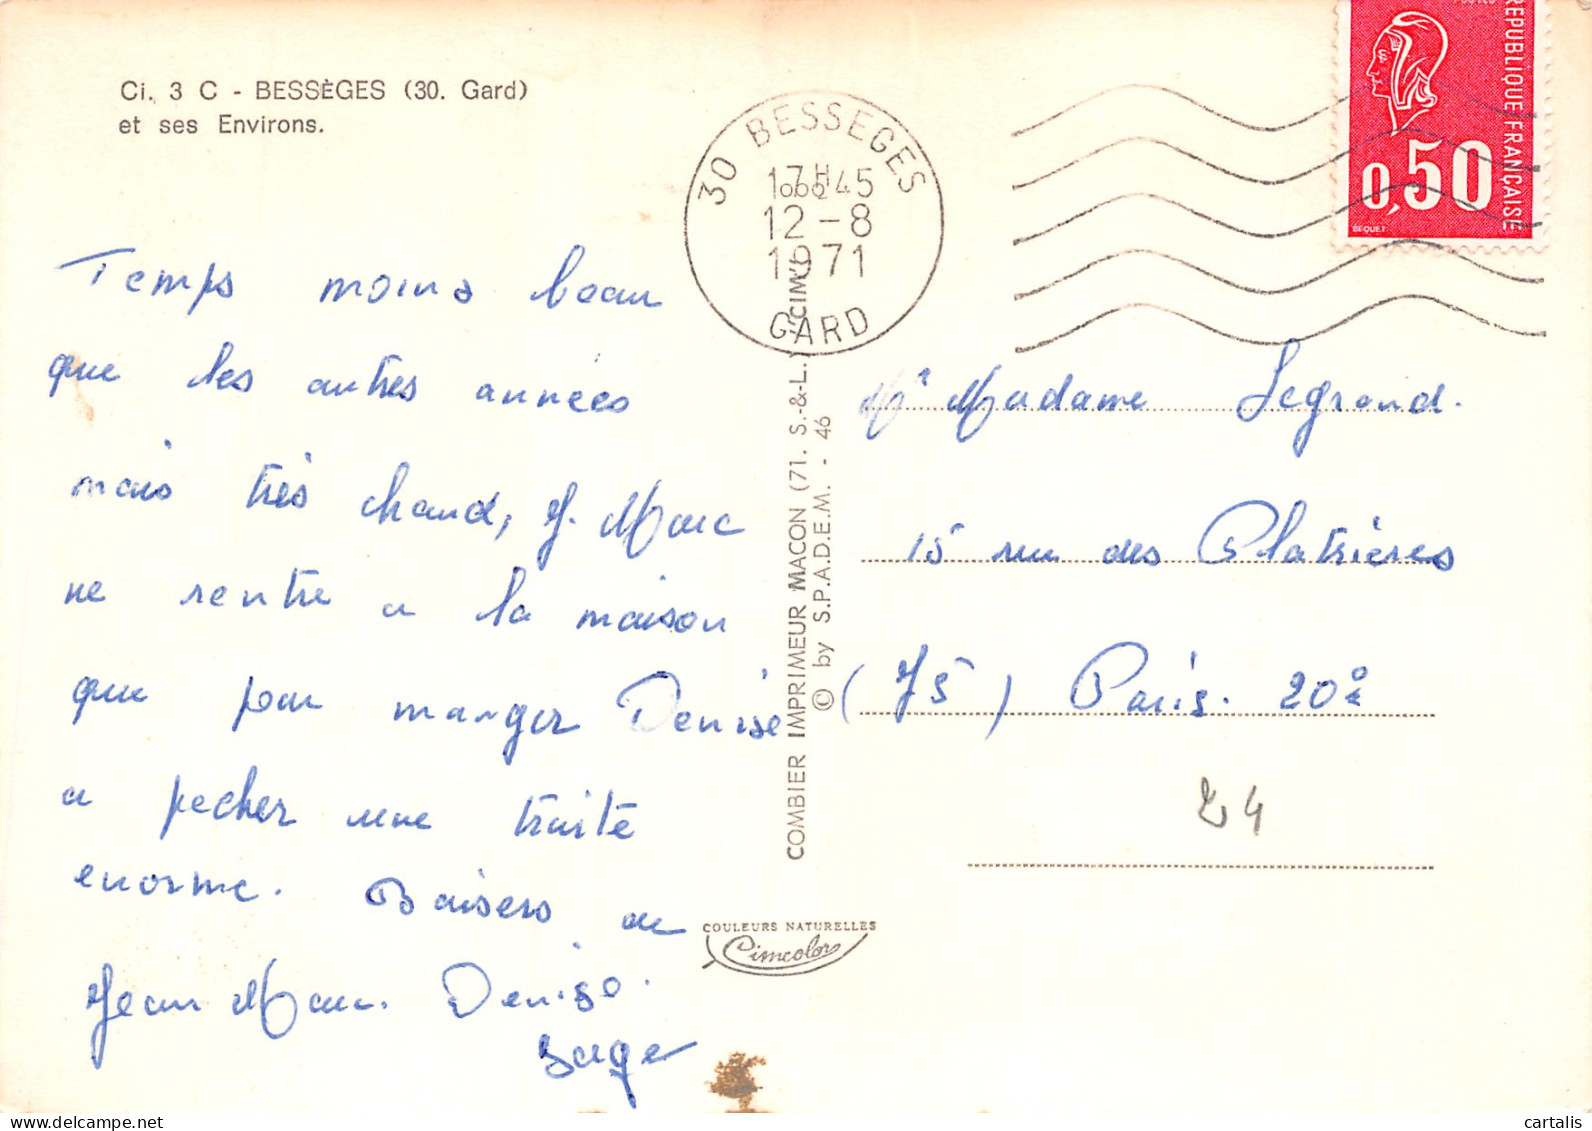 Ci. 3 C - BESSÈGES (30. Gard)
et ses Environs.
30 BESSEGES
17H45
12-8
1971
GARD
REPUBLIQUE FRANÇAISE
0,50
BEQUET
Temps moins beau
que les autres années
mais très chaud, J. Marc
ne rentre a la maison
que pour manger Denise
a pecher une truite
enorme. Baisers de
Jean Marc. Denise.
Serge
COMBIER IMPRIMEUR MACON (71. S.-&-L.) "CIM"
© by S.P.A.D.E.M. - 46
COULEURS NATURELLES
Cimcolor
Mr Madame Legrand.
15 rue des Platrières
(75) Paris. 20e
24
delcampe.net
cartalis